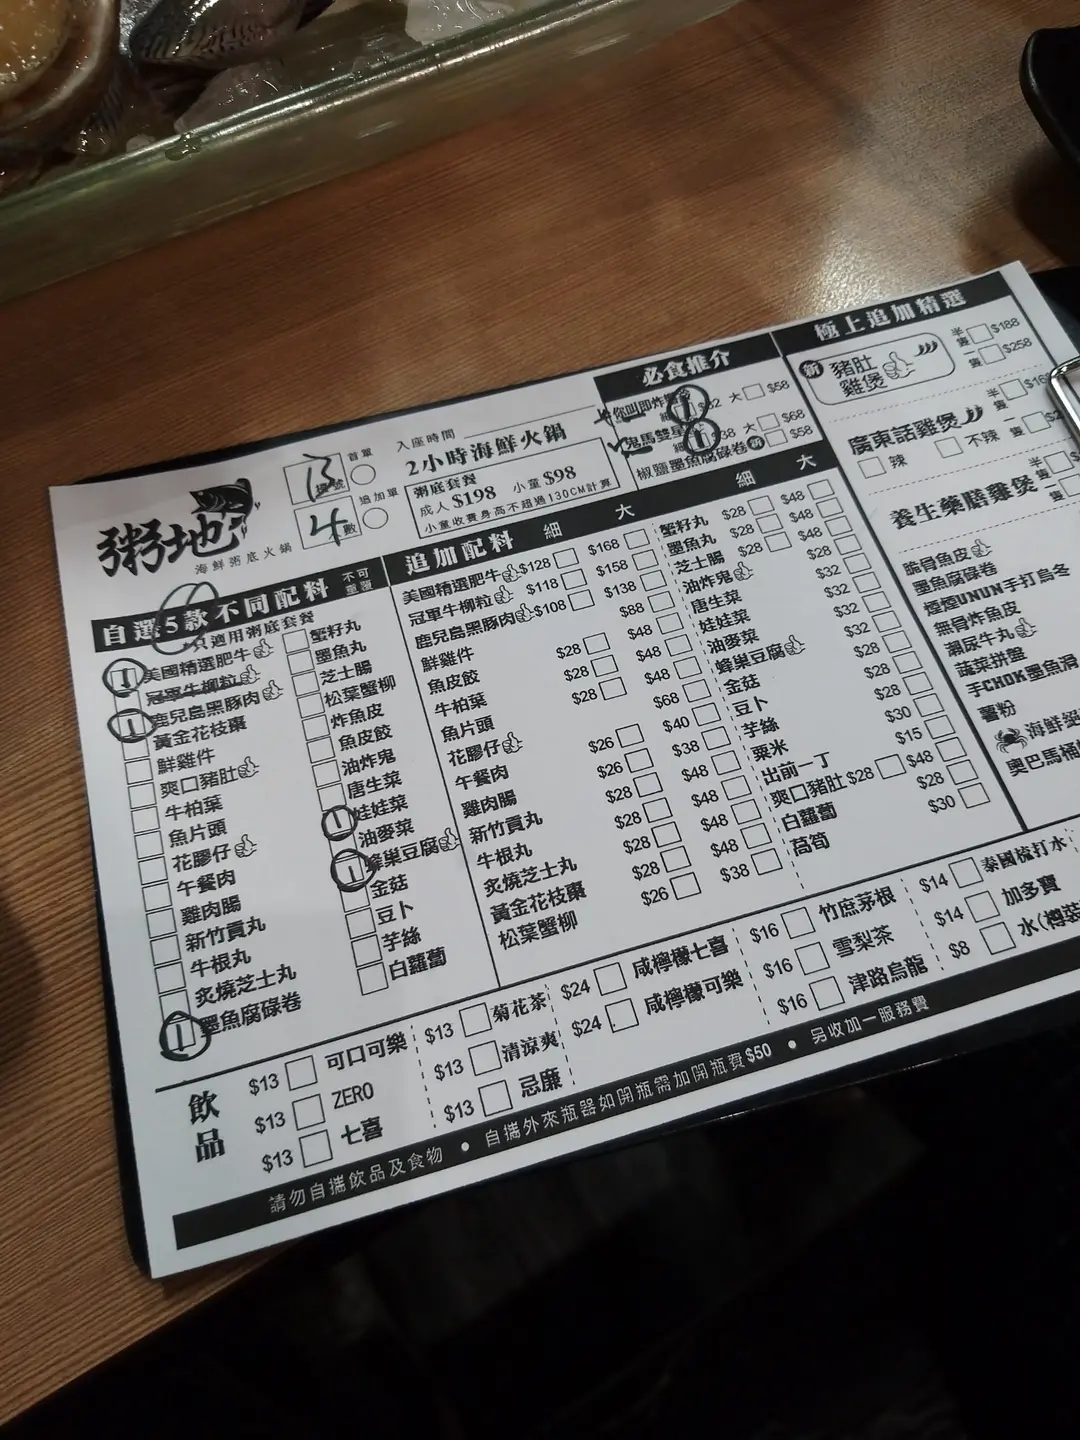 粥地
海鮮粥底火鍋
13
檯號
首單
4
位數
追加單
入座時間
2小時海鮮火鍋
粥底套餐
成人 $198 小童 $98
小童收費身高不超過130CM計算
必食推介
大 $58
鬼馬雙星
細 1 $38 大 $68
椒鹽墨魚腐碌卷 新 $58
極上追加精選
新 豬肚雞煲
半隻 $188
一隻 $258
廣東話雞煲
辣 不辣
半隻
隻
養生藥膳雞煲
半隻
脆骨魚皮
墨魚腐碌卷
煙煙UNUN手打烏冬
無骨炸魚皮
瀨尿牛丸
蔬菜拼盤
手CHOK墨魚滑
薯粉
海鮮
奧巴馬桶
自選5款不同配料 不可重覆
*只適用粥底套餐
1 美國精選肥牛
冠軍牛柳粒
1 鹿兒島黑豚肉
黃金花枝棗
鮮雞件
爽口豬肚
牛柏葉
魚片頭
花膠仔
午餐肉
雞肉腸
新竹貢丸
牛根丸
炙燒芝士丸
1 墨魚腐碌卷
蟹籽丸
墨魚丸
芝士腸
松葉蟹柳
炸魚皮
魚皮餃
油炸鬼
唐生菜
1 娃娃菜
油麥菜
1 蜂巢豆腐
金菇
豆卜
芋絲
白蘿蔔
追加配料 細 大
美國精選肥牛 $128 $168
冠軍牛柳粒 $118 $158
鹿兒島黑豚肉 $108 $138
鮮雞件 $88
魚皮餃 $28 $48
牛柏葉 $28 $48
魚片頭 $28 $48
花膠仔 $68
午餐肉 $26 $40
雞肉腸 $26 $38
新竹貢丸 $28 $48
牛根丸 $28 $48
炙燒芝士丸 $28 $48
黃金花枝棗 $28 $48
松葉蟹柳 $26 $38
細 大
蟹籽丸 $28 $48
墨魚丸 $28 $48
芝士腸 $28 $48
油炸鬼 $28
唐生菜 $32
娃娃菜 $32
油麥菜 $32
蜂巢豆腐 $28
金菇 $28
豆卜 $28
芋絲 $30
粟米 $15
出前一丁
爽口豬肚 $28 $48
白蘿蔔 $28
萵筍 $30
飲品
$13 可口可樂
$13 ZERO
$13 七喜
$13 菊花茶
$13 清涼爽
$13 忌廉
$24 咸檸檬七喜
$24 咸檸檬可樂
$16 竹庶茅根
$16 雪梨茶
$16 津路烏龍
$14 泰國梳打水
$14 加多寶
$8 水(樽裝
請勿自攜飲品及食物 ● 自攜外來瓶器如開瓶需加開瓶費$50 ● 另收加一服務費